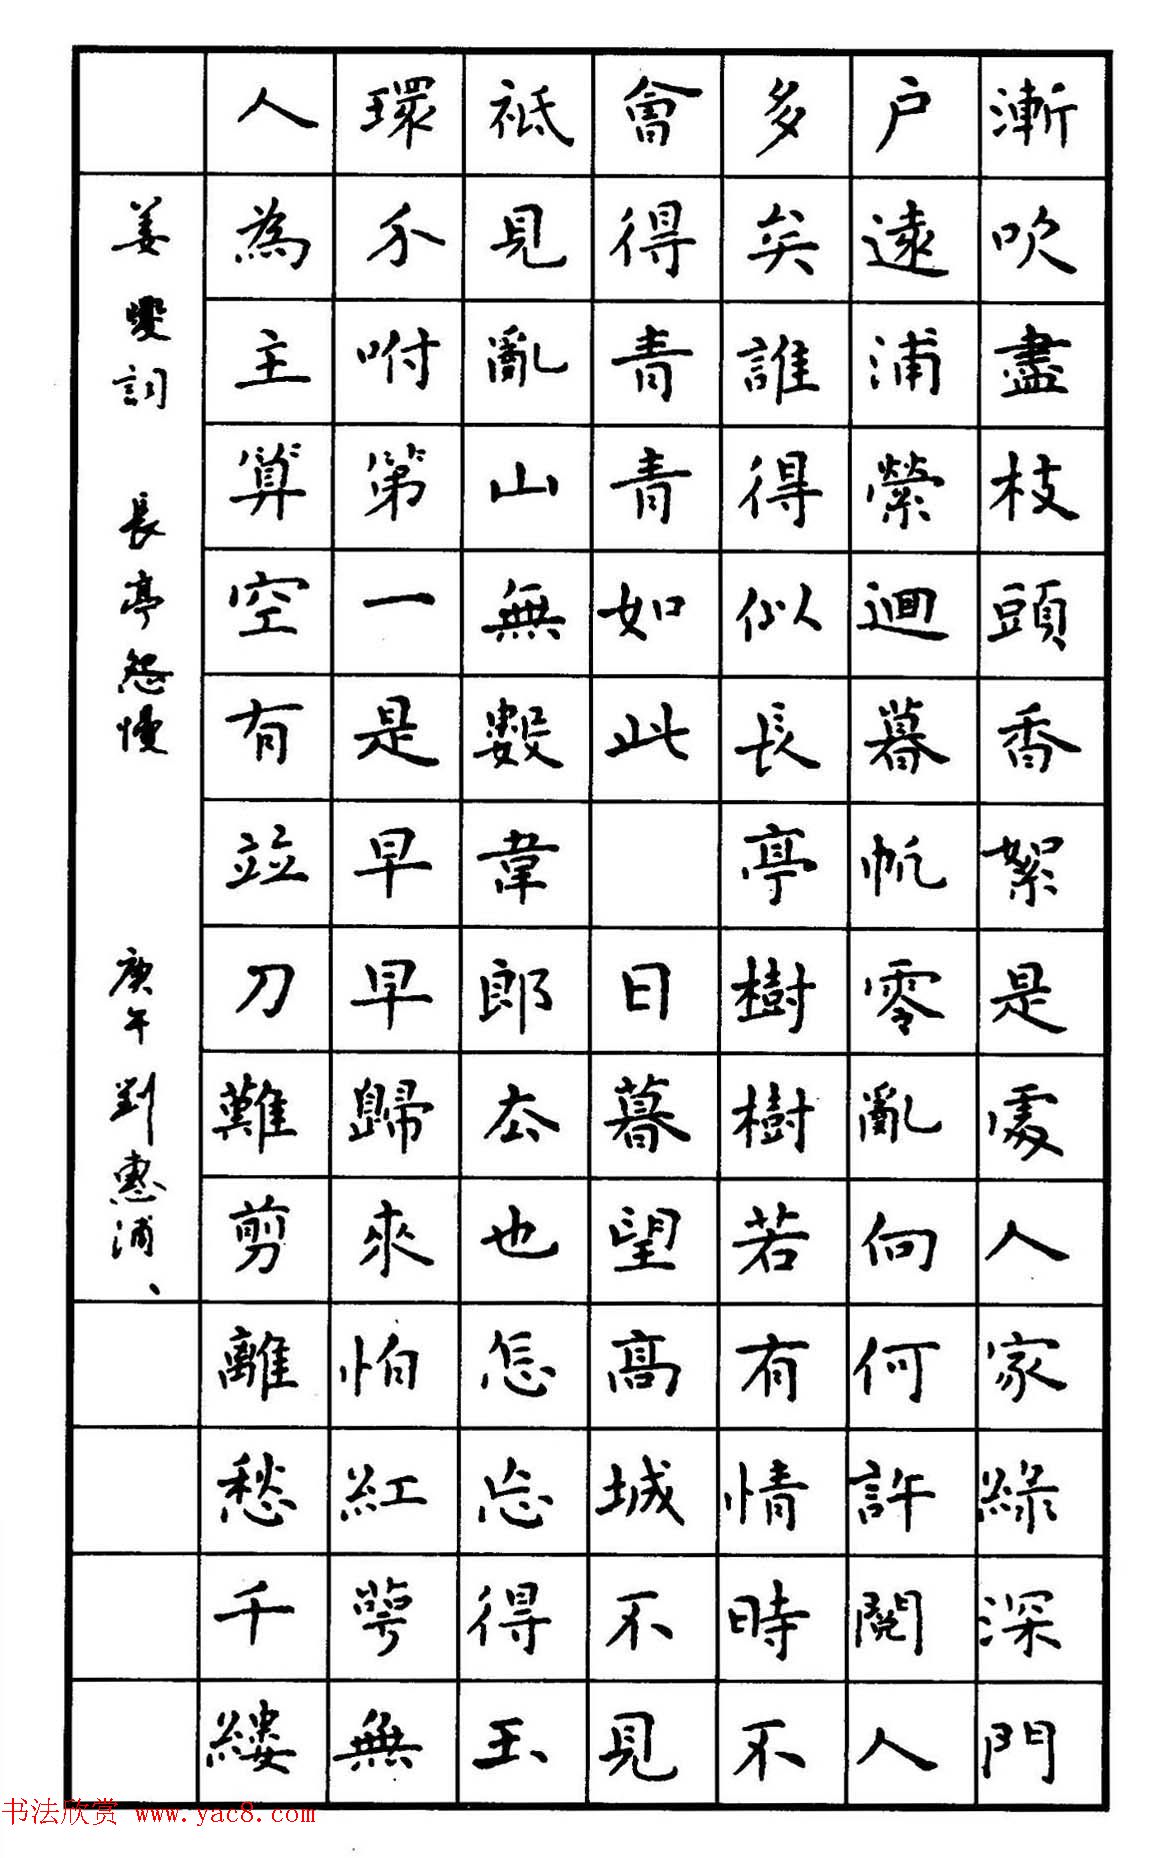 漸吹盡枝頭香絮是處人家綠深門
户遠浦縈迴暮帆零亂向何許閱人
多矣誰得似長亭樹樹若有情時不
會得青青如此 日暮望高城不見
祇見亂山無數韋郎去也怎忘得玉
環分咐第一是早早歸來怕紅萼無
人為主算空有並刀難剪離愁千縷
姜夔詞 長亭怨慢 庚午 劉惠浦、
书法欣赏 www.yac8.com